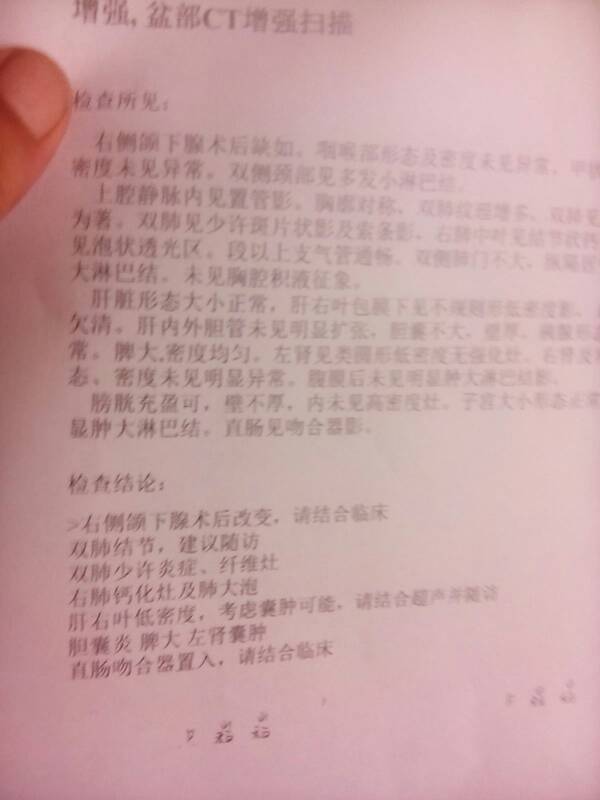 增强, 盆部CT增强扫描
检查所见:
右侧颌下腺术后缺如。咽喉部形态及密度未见异常。甲状
密度未见异常。双侧颈部见多发小淋巴结。
上腔静脉内见置管影。胸廓对称，双肺纹理增多，双肺见
为著。双肺见少许斑片状影及索条影。右肺中叶见结节状
见泡状透光区。段以上支气管通畅。双侧肺门不大，纵隔
大淋巴结。未见胸腔积液征象。
肝脏形态大小正常，肝右叶包膜下见不规则形低密度影，
欠清。肝内外胆管未见明显扩张，胆囊不大，壁厚，胰腺形态
常。脾大,密度均匀。左肾见类圆形低密度无强化灶。右肾及
态、密度未见明显异常。腹膜后未见明显肿大淋巴结影。
膀胱充盈可，壁不厚，内未见高密度灶。子宫大小形态正常
显肿大淋巴结。直肠见吻合器影。
检查结论:
>右侧颌下腺术后改变，请结合临床
双肺结节，建议随访
双肺少许炎症、纤维灶
右肺钙化灶及肺大泡
肝右叶低密度，考虑囊肿可能，请结合超声并随访
胆囊炎 脾大 左肾囊肿
直肠吻合器置入，请结合临床